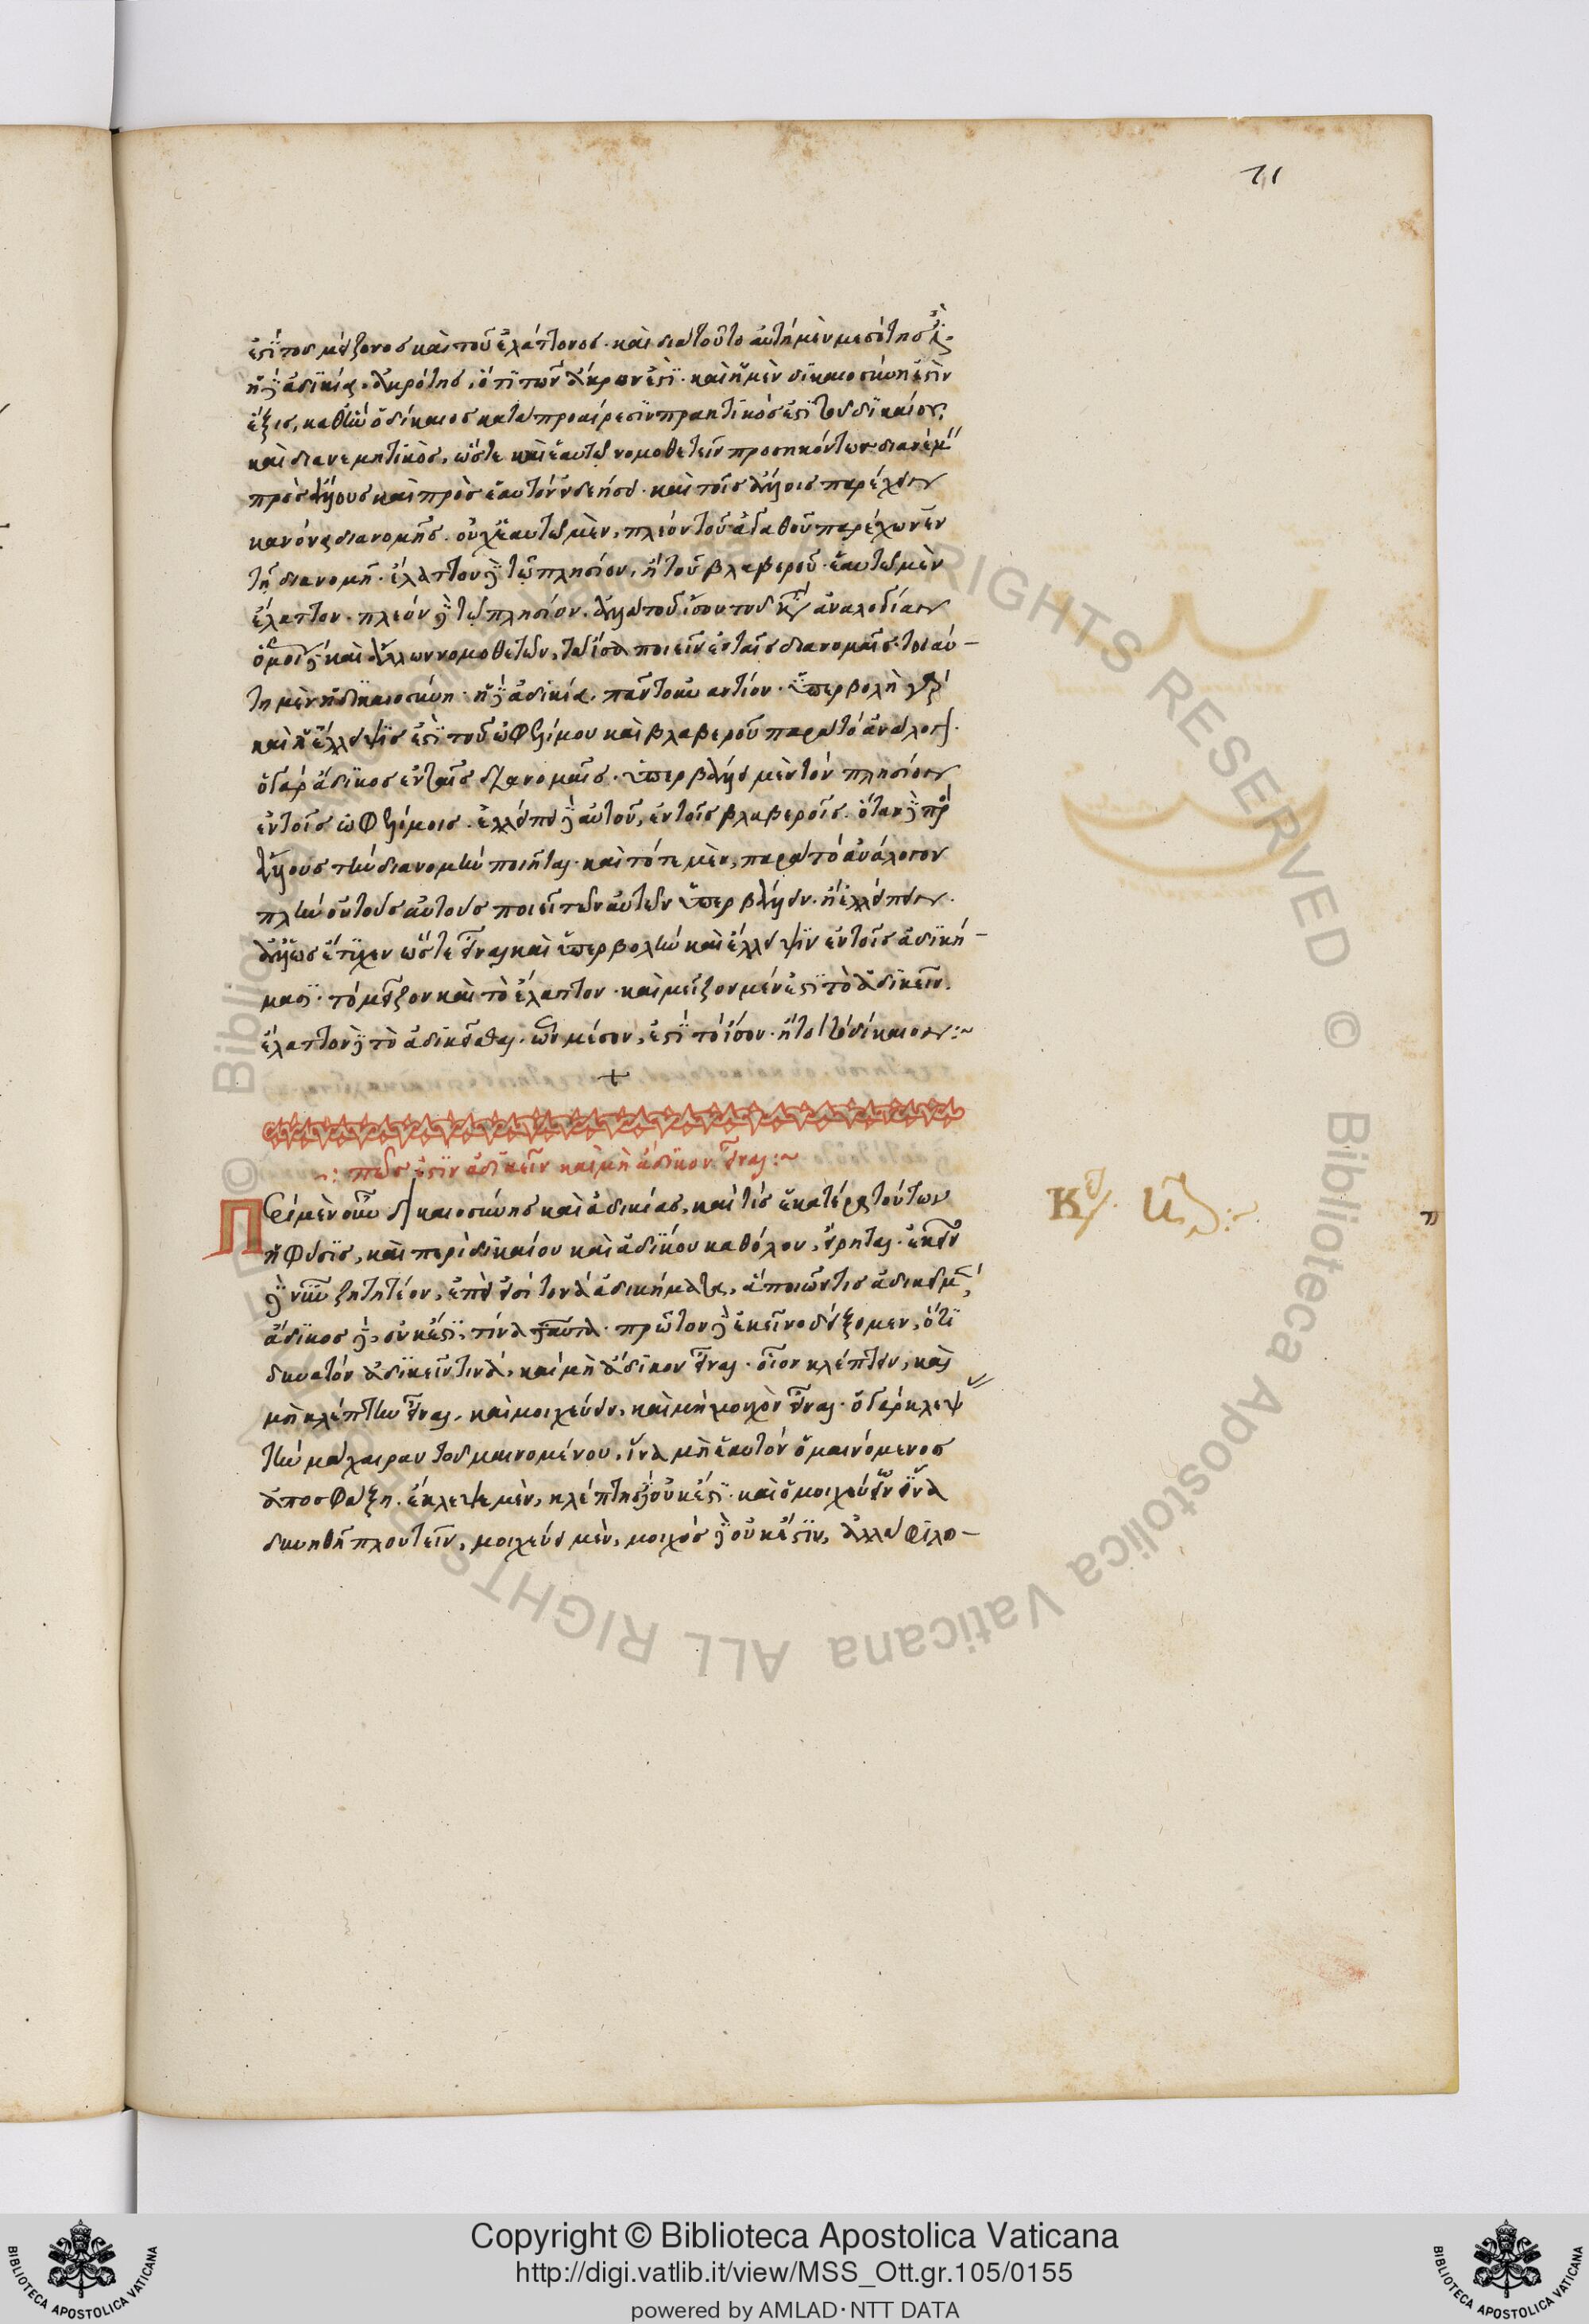 71
ἐστὶ τοῦ μείζονος καὶ τοῦ ἐλάττονος· καὶ διὰ τοῦτο αὐτὴ μὲν μεσότης ἐστὶν
ἡ δὲ ἀδικία, ἀκρότης, ὅτι τῶν ἄκρων ἐστί· καὶ ἡ μὲν δικαιοσύνη ἐστὶν
ἕξις, καθ' ἣν ὁ δίκαιος κατὰ προαίρεσιν πρακτικός ἐστι τοῦ δικαίου,
καὶ διανεμητικὸς, ὥστε καὶ ἑαυτῷ νομοθετεῖν προσηκόντως διανέμειν
πρὸς ἄλλους καὶ πρὸς ἑαυτὸν καὶ τοῖς ἄλλοις παρέχειν
κανόνας διανομῆς. οὐχ ἑαυτῷ μὲν, πλέον τοῦ ἀγαθοῦ παρέχων ἐν
τῇ διανομῇ· ἔλαττον δὲ τῷ πλησίον, ἢ τοῦ βλαβεροῦ ἑαυτῷ μὲν
ἔλαττον· πλέον δὲ τῷ πλησίον. ἀλλὰ τοῦ ἴσου τοῦ κατ' ἀναλογίαν
ὁμοίως δὲ καὶ ἄλλων νομοθετῶν, τὰ ἴσα ποιεῖν ἐν ταῖς διανομαῖς· τοιαύ-
τη μὲν ἡ δικαιοσύνη· ἡ δὲ ἀδικία, πᾶν τοὐναντίον· ὑπερβολὴ γάρ
καὶ ἡ ἔλλειψίς ἐστι τοῦ ὠφελίμου καὶ βλαβεροῦ παρὰ τὸ ἀνάλογον.
ὁ γὰρ ἄδικος ἐν ταῖς διανομαῖς· ὑπερβάλλει μὲν τὸν πλησίον
ἐν τοῖς ὠφελίμοις· ἐλλείπει δὲ αὐτοῦ, ἐν τοῖς βλαβεροῖς. ὅταν δὲ πρὸς
ἄλλους τὴν διανομὴν ποιῆται· καὶ τότε μὲν, παρὰ τὸ ἀνάλογον
πλὴν οὐ τοὺς αὐτοὺς ποιεῖ τῶν αὐτῶν ὑπερβάλλειν ἢ ἐλλείπειν.
ἀλλ' ὡς ἔτυχεν ὥστε εἶναι καὶ ὑπερβολὴν καὶ ἔλλειψιν ἐν τοῖς ἀδική-
μασι· τὸ μεῖζον καὶ τὸ ἔλαττον· καὶ μεῖζον μέν ἐστι τὸ ἀδικεῖν.
ἔλαττον δὲ τὸ ἀδικεῖσθαι· ὧν μέσον, ἐστὶ τὸ ἴσον· ἤτοι τὸ δίκαιον:~
+
πῶς ἐστιν ἀδικεῖν καὶ μὴ ἄδικον εἶναι:~
Περὶ μὲν οὖν δικαιοσύνης καὶ ἀδικίας, καὶ τίς ἑκατέρας τούτων
ἡ φύσις, καὶ περὶ δικαίου καὶ ἀδίκου καθόλου, εἴρηται·
δὲ νῦν ζητητέον, ἐπεί εἰσί τινα ἀδικήματα, ἃ ποιῶν τις ἀδικεῖ μὲν,
ἄδικος δὲ, οὐκ ἔστι, τίνα ταῦτα· πρῶτον δὲ ἐκεῖνο δείξομεν, ὅτι
δυνατὸν ἀδικεῖν τινὰ, καὶ μὴ ἄδικον εἶναι· οἷον κλέπτειν, καὶ
μὴ κλέπτην εἶναι, καὶ μοιχεύειν, καὶ μὴ μοιχὸν εἶναι· ὁ γὰρ κλέψας
τὴν μάχαιραν τοῦ μαινομένου, ἵνα μὴ ἑαυτὸν ὁ μαινόμενος
ἀποσφάξῃ. ἔκλεψε μὲν, κλέπτης δὲ οὐκ ἔστι· καὶ ὁ μοιχεύων ἵνα
δυνηθῇ πλουτεῖν, μοιχεύει μὲν, μοιχὸς δὲ οὐκ ἔστιν, ἀλλὰ φιλο-
ALL RIGHTS RESERVED © Biblioteca Apostolica Vaticana
Copyright © Biblioteca Apostolica Vaticana
http://digi.vatlib.it/view/MSS_Ott.gr.105/0155
powered by AMLAD·NTT DATA
BIBLIOTECA APOSTOLICA VATICANA
BIBLIOTECA APOSTOLICA VATICANA